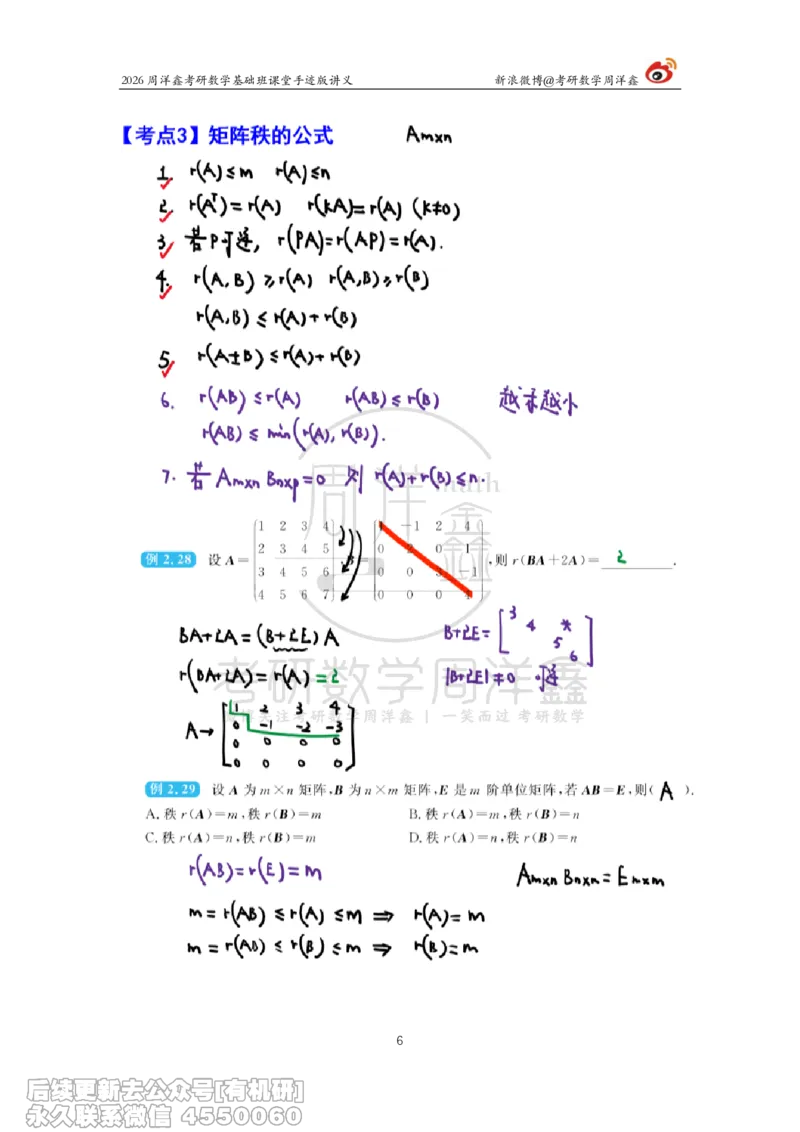 2026 周洋鑫考研数学基础班课堂手迹版讲义 新浪微博@考研数学周洋鑫
【考点3】矩阵秩的公式 Am×n
1. r(A)≤m r(A)≤n
2. r(Aᵀ)=r(A) r(kA)=r(A) (k≠0)
3. 若P可逆, r(PA)=r(AP)=r(A).
4. r(A,B)≥r(A) r(A,B)≥r(B)
r(A,B)≤r(A)+r(B)
5. r(A±B)≤r(A)+r(B)
6. r(AB)≤r(A) r(AB)≤r(B) 越乘越小
r(AB)≤min(r(A),r(B)).
7. 若 Am×n Bn×p=0 则 r(A)+r(B)≤n.
1 2 3 4 1 -1 2 4
2 3 4 5 0 2 0 1
例 2.28 设 A= B= ,则 r(BA+2A)= 2 .
3 4 5 6 0 0 3 -1
4 5 6 7 0 0 0 4
BA+2A=(B+2E)A B+2E= [3 4 * 5 6]
r(BA+2A)=r(A)=2 |B+2E|≠0 可逆
考研数学周洋鑫
关注考研数学周洋鑫 | 一笑而过 考研数学
1 2 3 4
A→ 0 -1 -2 -3
0 0 0 0
0 0 0 0
例 2.29 设 A 为 m×n 矩阵,B 为 n×m 矩阵,E 是 m 阶单位矩阵,若 AB=E,则( A ).
A. 秩 r(A)=m,秩 r(B)=m B. 秩 r(A)=m,秩 r(B)=n
C. 秩 r(A)=n,秩 r(B)=m D. 秩 r(A)=n,秩 r(B)=n
r(AB)=r(E)=m Am×n Bn×m=Em×m
m=r(AB)≤r(A)≤m ⇒ r(A)=m
m=r(AB)≤r(B)≤m ⇒ r(B)=m
6
后续更新去公众号[有机研]
永久联系微信 4550060